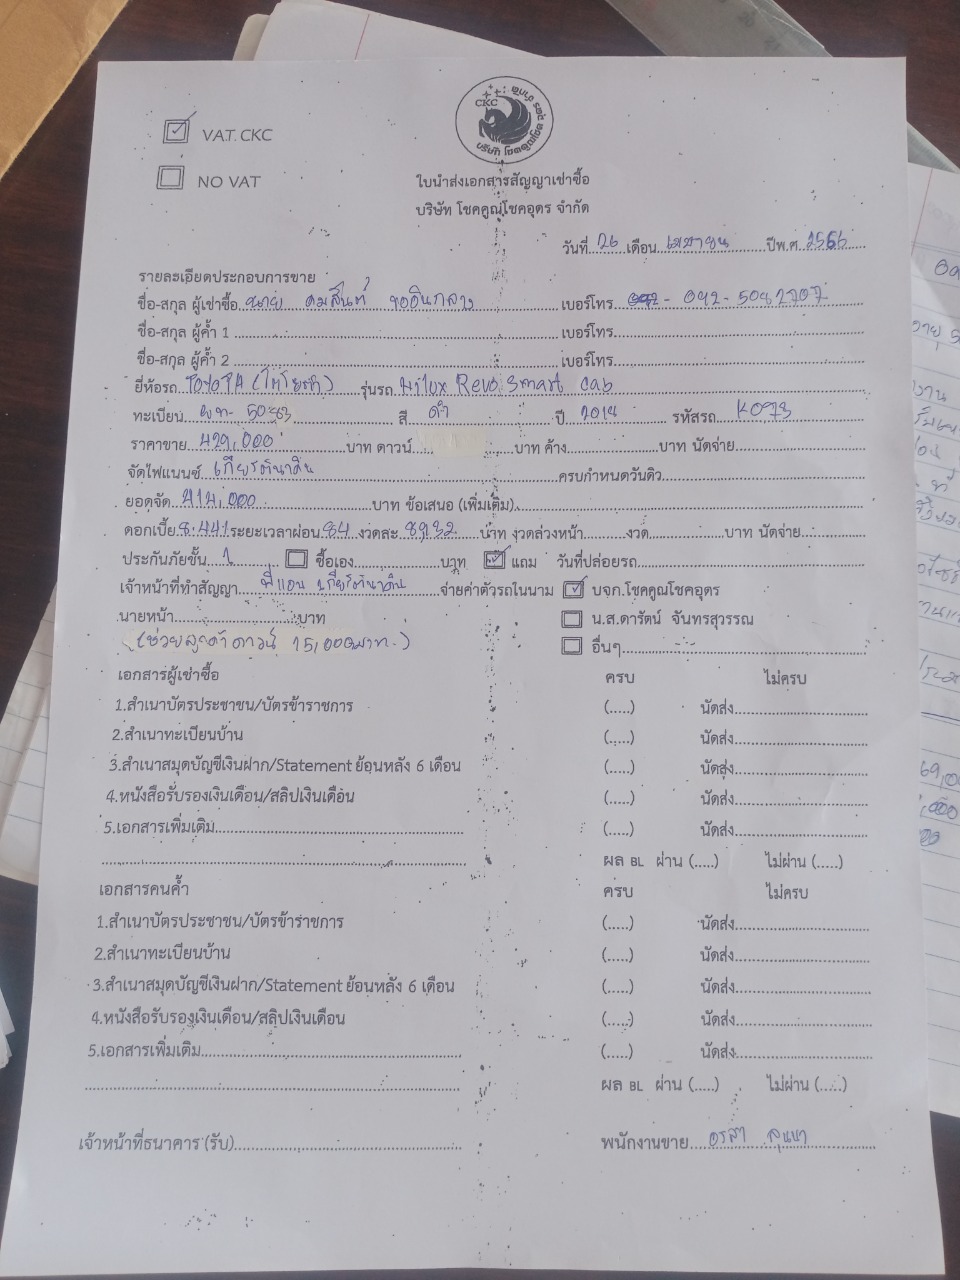 CKC
บริษัท โชคคูณโชคอุดร จำกัด
VAT. CKC
NO VAT
ใบนำส่งเอกสารสัญญาเช่าซื้อ
บริษัท โชคคูณโชคอุดร จำกัด
วันที่ 26 เดือน เมษายน ปีพ.ศ. 2566
รายละเอียดประกอบการขาย
ชื่อ-สกุล ผู้เช่าซื้อ นาย คมสันต์ เบอร์โทร 042-5082707
ชื่อ-สกุล ผู้ค้ำ 1 เบอร์โทร
ชื่อ-สกุล ผู้ค้ำ 2 เบอร์โทร
ยี่ห้อรถ TOYOTA (โตโยต้า) รุ่นรถ Hilux Revo Smart Cab
ทะเบียน สี ดำ ปี 2018 รหัสรถ K073
ราคาขาย 429,000 บาท ดาวน์ บาท ค้าง บาท นัดจ่าย
จัดไฟแนนซ์ เกียรตินาคิน ครบกำหนดวันดิว
ยอดจัด 414,000 บาท ข้อเสนอ (เพิ่มเติม)
ดอกเบี้ย 8.441 ระยะเวลาผ่อน 84 งวดละ 8,932 บาท งวดล่วงหน้า งวด บาท นัดจ่าย
ประกันภัยชั้น 1 ซื้อเอง บาท แถม วันที่ปล่อยรถ
เจ้าหน้าที่ทำสัญญา พี่แอน เกียรตินาคิน จ่ายค่าตัวรถในนาม บจก.โชคคูณโชคอุดร
นายหน้า บาท น.ส.ดารัตน์ จันทรสุวรรณ
(ช่วยลูกค้าดาวน์ 15,000 บาท.) อื่นๆ
เอกสารผู้เช่าซื้อ ครบ ไม่ครบ
1.สำเนาบัตรประชาชน/บัตรข้าราชการ (.....) นัดส่ง
2.สำเนาทะเบียนบ้าน (.....) นัดส่ง
3.สำเนาสมุดบัญชีเงินฝาก/Statement ย้อนหลัง 6 เดือน (.....) นัดส่ง
4.หนังสือรับรองเงินเดือน/สลิปเงินเดือน (.....) นัดส่ง
5.เอกสารเพิ่มเติม (.....) นัดส่ง
ผล BL ผ่าน (.....) ไม่ผ่าน (.....)
เอกสารคนค้ำ ครบ ไม่ครบ
1.สำเนาบัตรประชาชน/บัตรข้าราชการ (.....) นัดส่ง
2.สำเนาทะเบียนบ้าน (.....) นัดส่ง
3.สำเนาสมุดบัญชีเงินฝาก/Statement ย้อนหลัง 6 เดือน (.....) นัดส่ง
4.หนังสือรับรองเงินเดือน/สลิปเงินเดือน (.....) นัดส่ง
5.เอกสารเพิ่มเติม (.....) นัดส่ง
ผล BL ผ่าน (.....) ไม่ผ่าน (.....)
เจ้าหน้าที่ธนาคาร (รับ) พนักงานขาย อรสา